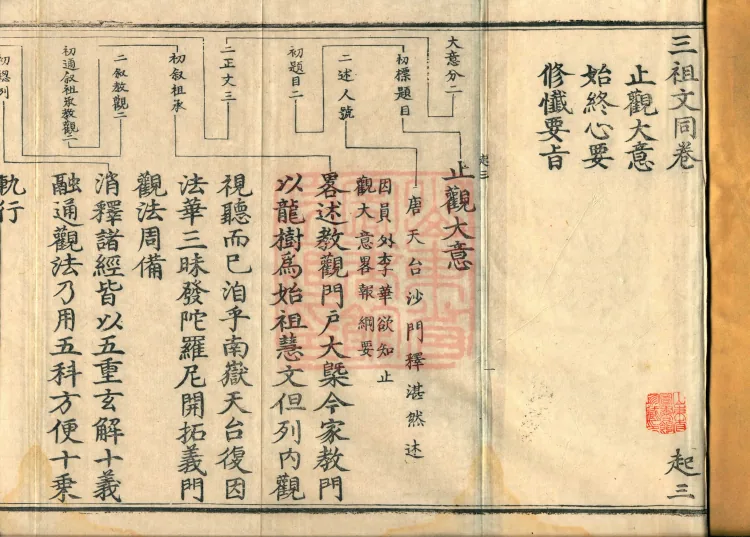 三祖文同卷
起三
止觀大意
始終心要
修懺要旨
起三
一
大意分二
初標題目
二述人號
初題目二
二正文三
初叙祖承
二叙教觀二
初通叙祖承教觀二
初總列
止觀大意
唐天台沙門釋湛然述
因員外李華欲知止
觀大意畧報綱要
畧述教觀門戶大槩今家教門
以龍樹爲始祖慧文但列內觀
視聽而已洎乎南嶽天台復因
法華三昧發陀羅尼開拓義門
觀法周備
消釋諸經皆以五重玄解十義
融通觀法乃用五科方便十乘
軌行